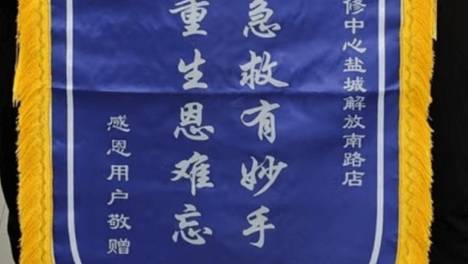 修中心盐城解放南路店
急救有妙手
重生恩难忘
感恩用户敬赠